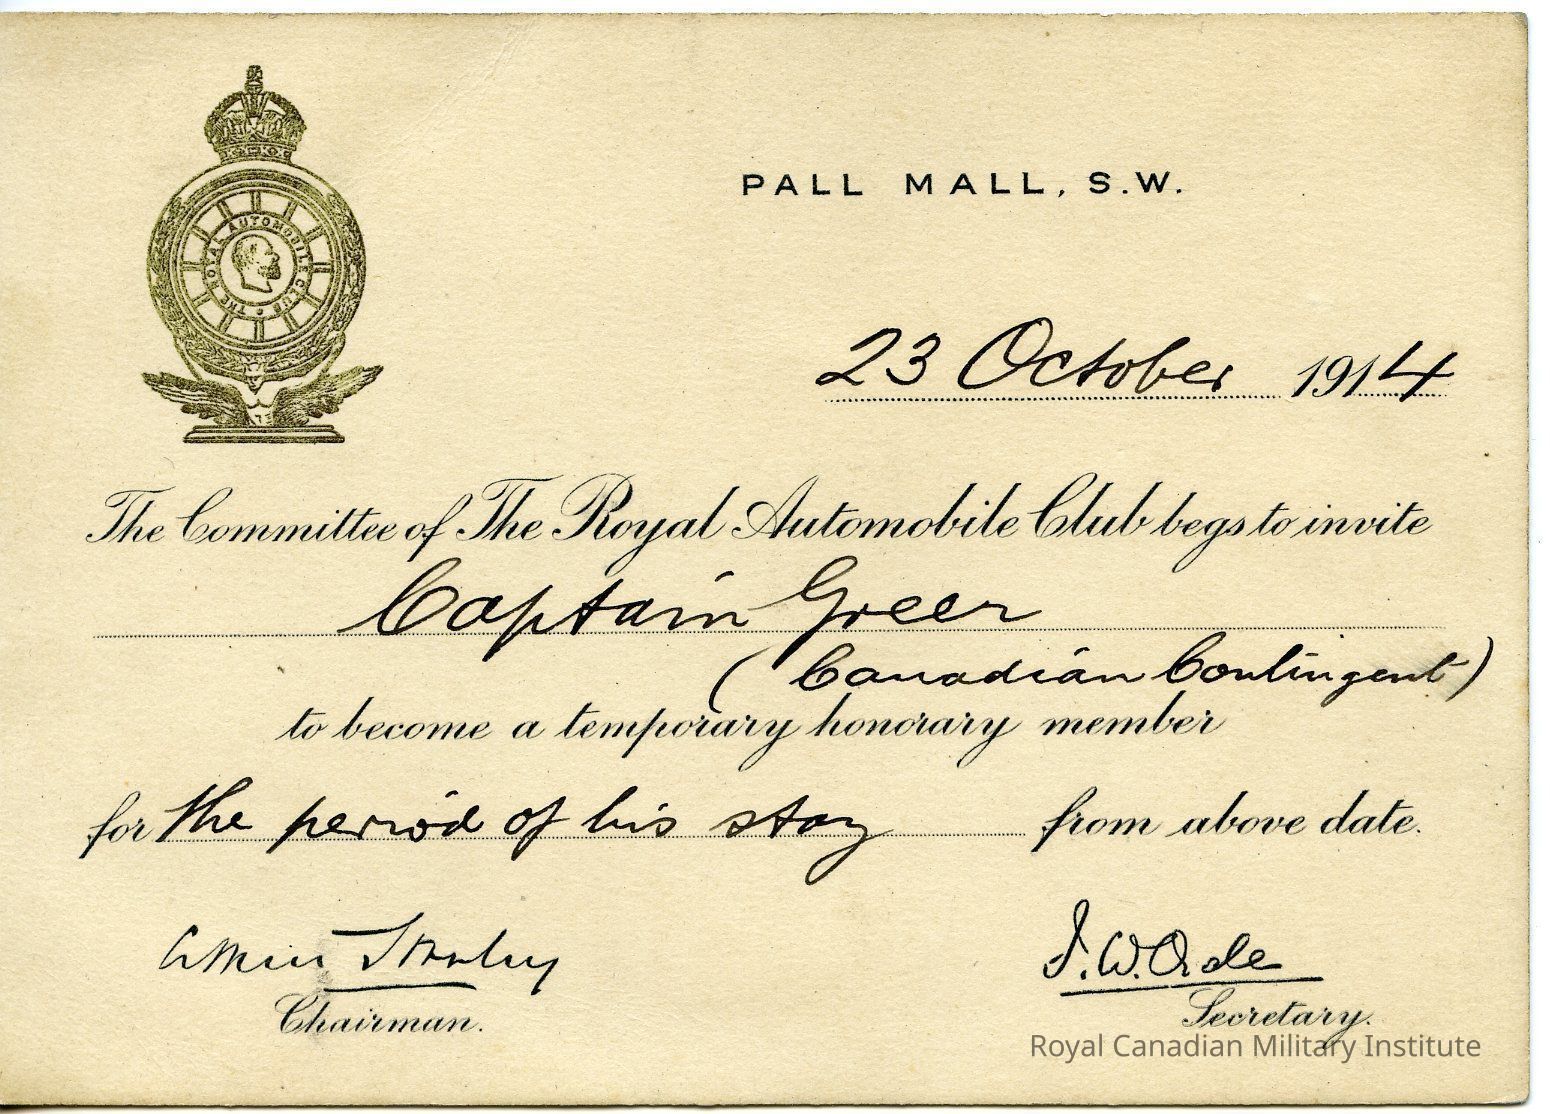 THE ROYAL AUTOMOBILE CLUB
PALL MALL, S.W.
23 October 1914
The Committee of The Royal Automobile Club begs to invite
Captain Greer
(Canadian Contingent)
to become a temporary honorary member
for the period of his stay from above date.
Stanley
J.W. Orde
Chairman.
Secretary.
Royal Canadian Military Institute